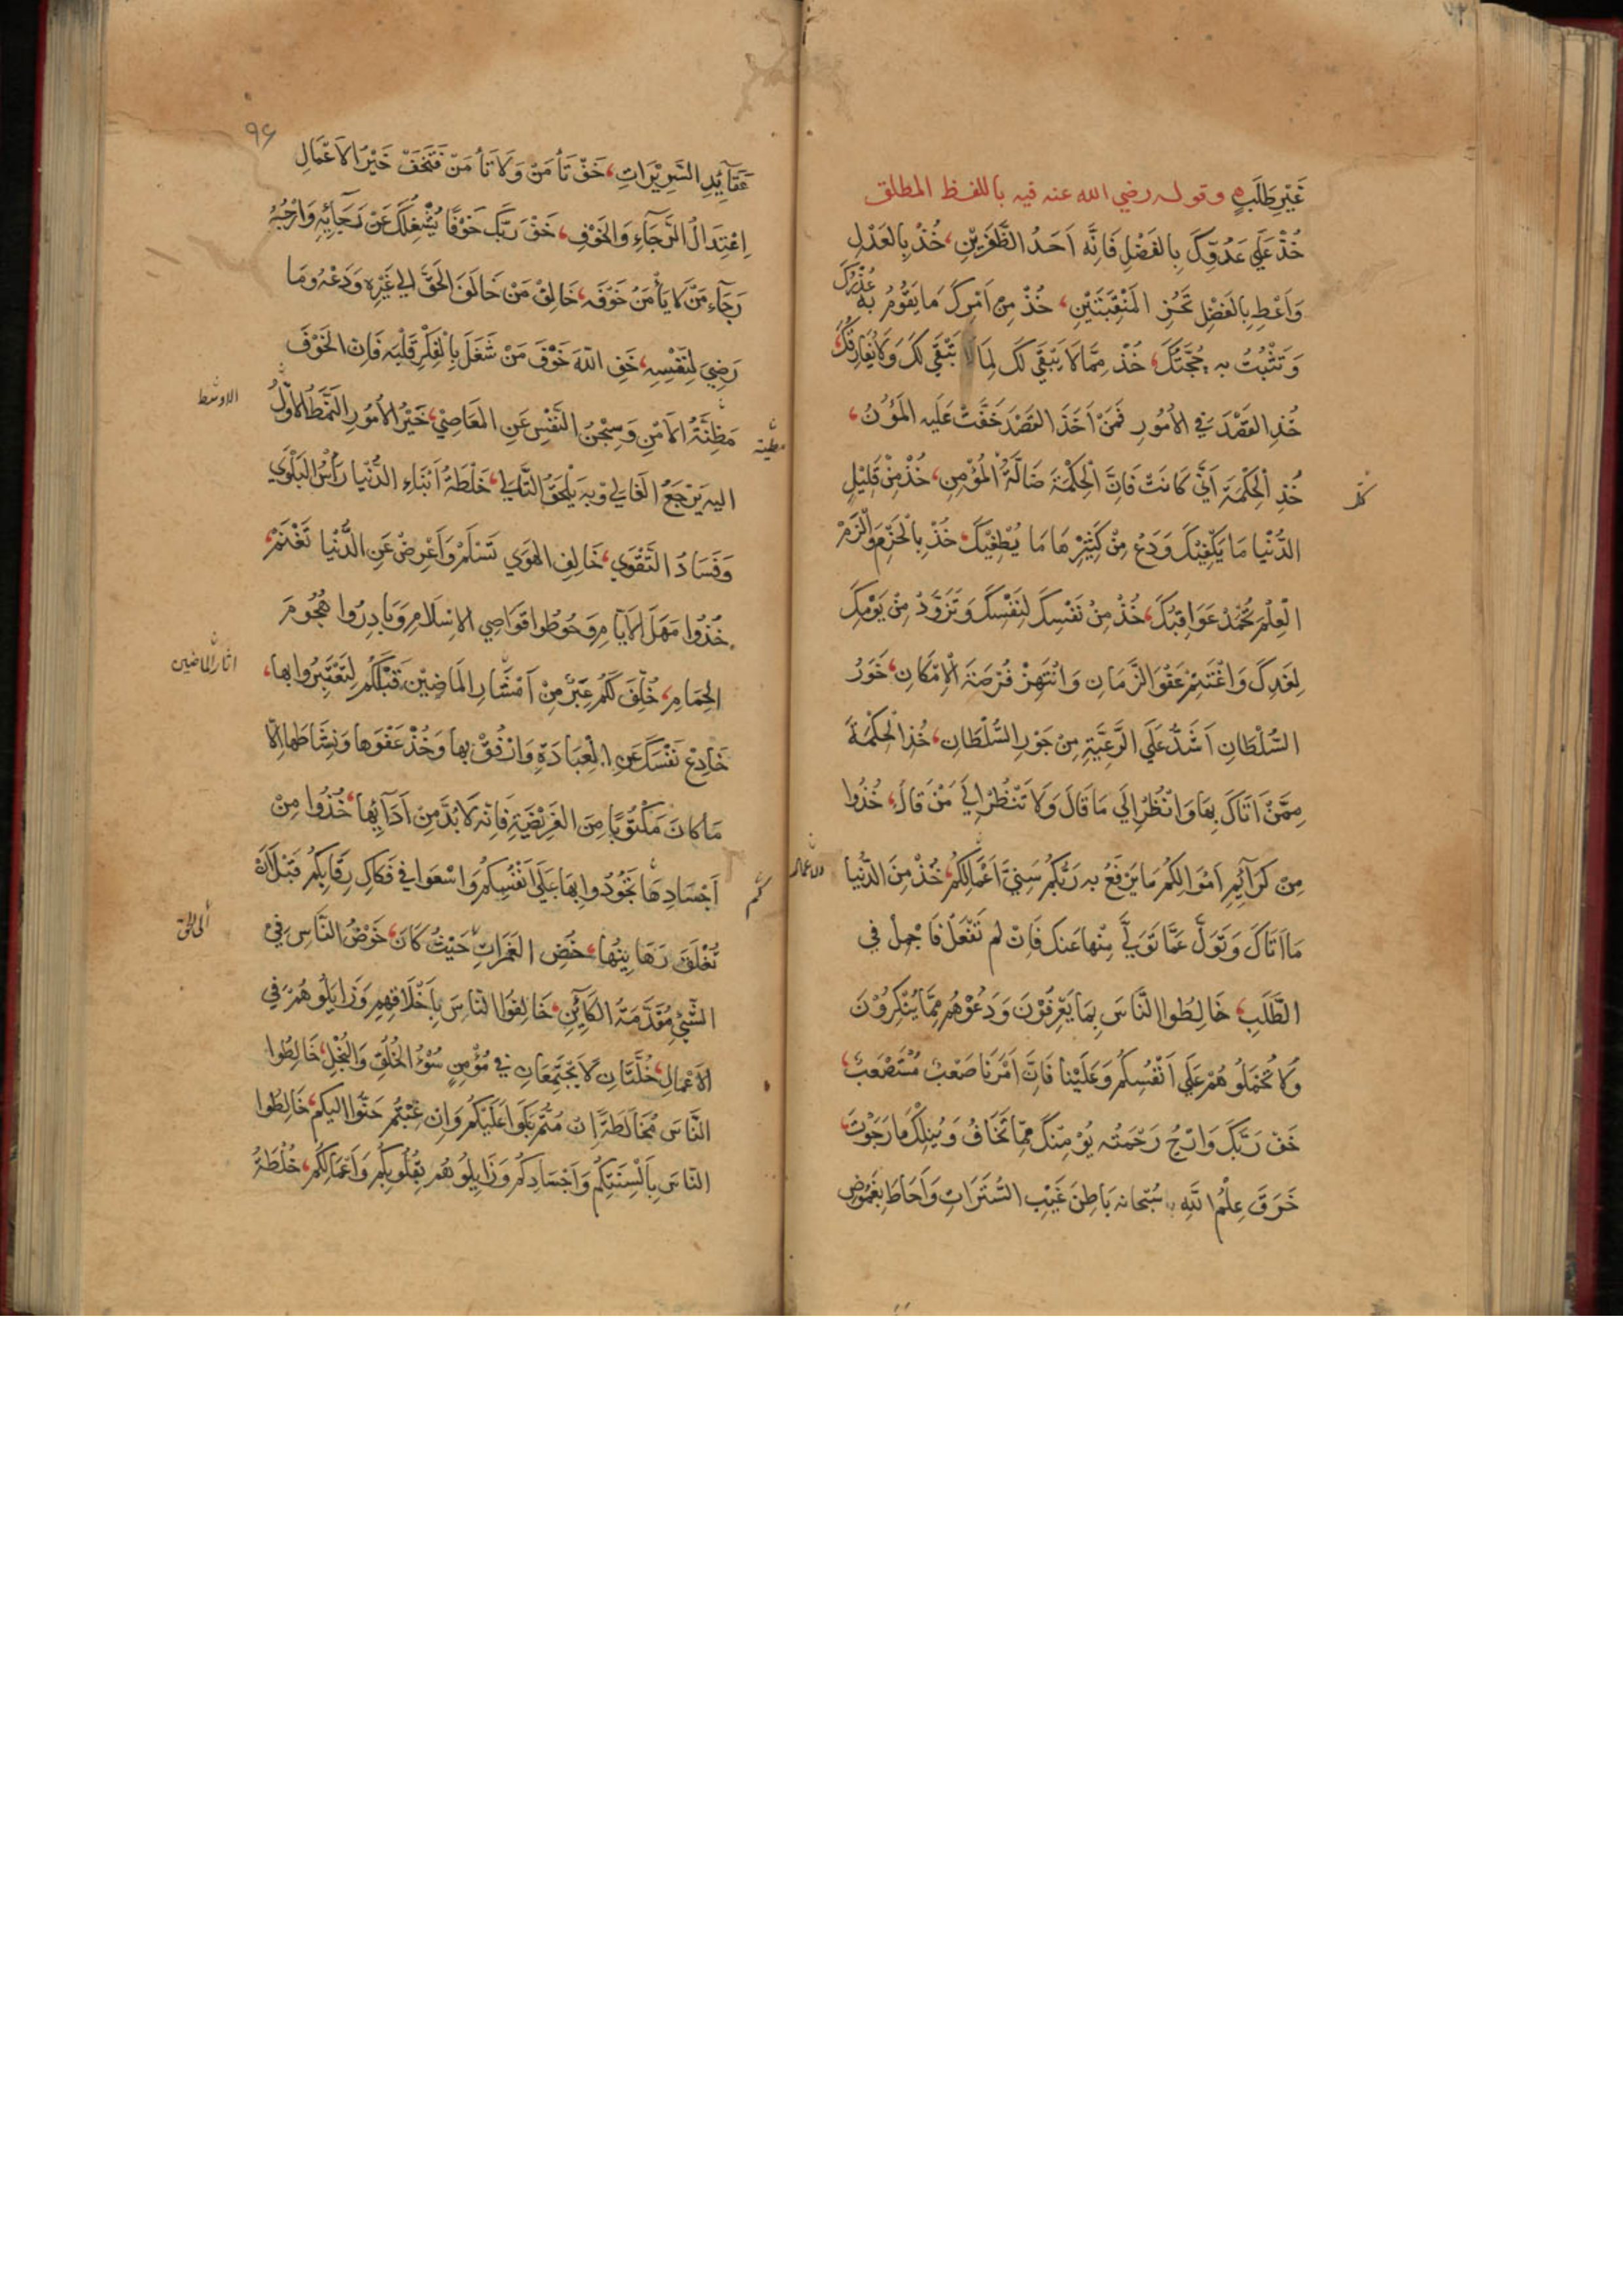 غَيْرِ طَلَبٍ وقوله رضي الله عنه فيه باللفظ المطلق
خُذْ عَلَي عَدُوِّكَ بِالفَضْلِ فَاِنَّه اَحَدُ الظَّفَرَيْنِ، خُذْ بِالعَدْلِ
وَاَعْطِ بِالفَضْلِ تَحُزِ المَنْقَبَتَيْنِ، خُذْ مِنْ اَمْرِكَ مَا يَقُوْمُ بِه عُذْرُكَ
وَتَثْبُتُ به حُجَّتُكَ، خُذْ مِمَّا لَا يَبْقَي لَكَ لِمَا لَا تَبْقَي لَكَ وَلَا يُفَارِقُكَ،
خُذِ القَصْدَ فِي الاُمُورِ فَمَنْ اَخَذَ القَصْدَ خَفَّتْ عَلَيه المُؤَنُ،
خُذِ الْحِكْمَةَ اَنَّي كَانَتْ فَاِنَّ الْحِكْمَةَ ضَالَّةُ الْمُؤْمِنِ، خُذْ مِنْ قَلِيْلِ
كلّ
الدُّنْيا مَا يَكْفِيْكَ وَدَعْ مِنْ كَثِيْرِهَا مَا يُطْغِيْكَ، خُذْ بِالْحَزْمِ وَالْزَمْ
الْعِلْمَ تُحْمَدْ عَوَاقِبُكَ، خُذْ مِنْ نَفْسِكَ لِنَفْسِكَ وَتَزَوَّدْ مِنْ يَوْمِكَ
لِغَدِكَ وَاغْتَنِمْ عَفْوَ الزَّمَانِ وَانْتَهِزْ فُرْصَةَ الْاِمْكَانِ، خَوَرُ
السُّلْطَانِ اَشَدُّ عَلَي الرَّعِيَّةِ مِنْ جَوْرِ السُّلْطَانِ، خُذِ الْحِكْمَةَ
مِمَّنْ اَتَاكَ بِهَا وَانْظُرْ اِلَي مَا قَالَ وَلَا تَنْظُرْ اِلَي مَنْ قَالَ، خُذُوا
مِنْ كَرَآئِمِ اَمْوَالِكُمْ مَا يَرْفَعُ به رَبُّكُمْ سَنِيَّ اَعْمَالِكُمْ، خُذْ مِنَ الدُّنْيا
الاعمال
مَا اَتَاكَ وَتَوَلَّ عَمَّا تَوَلَّي مِنْها عَنكَ فَاِنْ لم تَفْعَلْ فَاَجْمِلْ في
الطَّلَبِ، خَالِطُوا النَّاسَ بِمَا يَعْرِفُوْنَ وَدَعُوْهُمْ مِمَّا يُنْكِرُوْنَ
وَلَا تُحَمِّلُوْهُمْ عَلَي اَنْفُسِكُمْ وَعَلَيْنا فَاِنَّ اَمْرَنَا صَعْبٌ مُسْتَصْعَبٌ،
خَفْ رَبَّكَ وَارْجُ رَحْمَتَه يُؤْمِنْكَ مِمَّا تَخَافُ وَيُنِلْكَ مَا رَجَوْتَ،
خَرَقَ عِلْمُ اللَّهِ سُبْحَانه بَاطِنَ غَيْبِ السُّتَرَاتِ وَاَحَاطَ بِغُمُوْضِ
٩٦
عَقَآئِدِ السَّرِيْرَاتِ، خَفْ تَأْمَنْ وَلَا تَأْمَنْ فَتَخَفْ خَيْرُ الاَعْمَالِ
اِعْتِدَالُ الرَّجَآءِ وَالخَوْفِ، خَفْ رَبَّكَ خَوْفًا يُشْغِلُكَ عَنْ رَجَائِه وَارْجُهُ
رَجَآءَ مَنْ لَا يَأْمَنُ خَوْفَه، خَالِفْ مَنْ خَالَفَ الحَقَّ الي غَيْرِه وَدَعْه وَمَا
رَضِيَ لِنَفْسِهِ، خَفِ اللّهَ خَوْفَ مَنْ شَغَلَ بِالْفِكْرِ قَلْبَه فَاِنَّ الخَوْفَ
مَظِنَّةُ الاَمْنِ وَسِجْنُ النَّفْسِ عَنِ المَعَاصِيْ، خَيْرُ الاُمُورِ النَّمَطُ الاَوَّلُ
الاوسَط
مطيّة
اليه يَرْجِعُ الغَالِي وَبِه يَلْحَقُ التَّالِي، خُلْطَةُ اَبْنَاءِ الدُّنْيا رَأْسُ البَلْوَي
وَفَسَادُ التَّقْوَي، خَالِفِ الهَوَي تَسْلَمْ وَاَعْرِضْ عَنِ الدُّنْيا تَغْنَمْ،
خُذُوا مَهَلَ الاَيَّامِ وَحُوطُوا قَوَاصِي الاِسْلَامِ وَبَادِرُوا هُجُومَ
الحِمَامِ، خُلِّفَ لَكُمْ عِبَرٌ مِنْ اَمْثَارِ المَاضِيْنَ قَبْلَكُمْ لِتَعْتَبِرُوا بها،
اثار الماضين
خَادِعْ نَفْسَكَ عَنِ الْعِبَادَةِ وَارْفُقْ بها وَخُذْ عَفْوَها وَنَشَاطَها اِلَّا
مَا كَانَ مَكْتُوْبًا مِنَ الفَرِيْضَةِ فَاِنَّه لَا بُدَّ مِنْ اَدَآئِها، خُذُوا مِنْ
اَجْسَادِهَا تَجُوْدُوا بِهَا عَلَي اَنْفُسِكُمْ وَاسْعَوا في فَكَاكِ رِقَابِكُمْ قَبْلَ اَنْ
كم
تُغْلَقَ رَهَايِنُها، خُضِ الغَمَرَاتِ حَيْثُ كَانَ، خَوْضُ النَّاسِ فِيْ
الي الحق
الشَّيْءِ مُقَدَّمَةُ الكَآئِنِ، خَالِقُوا النَّاسَ بِاَخْلَاقِهِمْ وَزَايِلُوهُمْ في
الاَعْمَالِ، خُلَّتَانِ لَا يَجْتَمِعَانِ في مُؤْمِنٍ سُوْءُ الخُلُقِ وَالبُخْلُ، خَالِطُوا
النَّاسَ مُخَالَطَةً اِنْ مُتُّمْ بَكَوْا عَلَيْكُمْ وَاِنْ غِبْتُمْ حَنُّوا اليكم، خَالِطُوا
النَّاسَ بِاَلْسِنَتِكُمْ وَاَجْسَادِكُمْ وَزَايِلُوهُمْ بِقُلُوبِكُمْ وَاَعْمَالِكُمْ، خُلْطَةُ